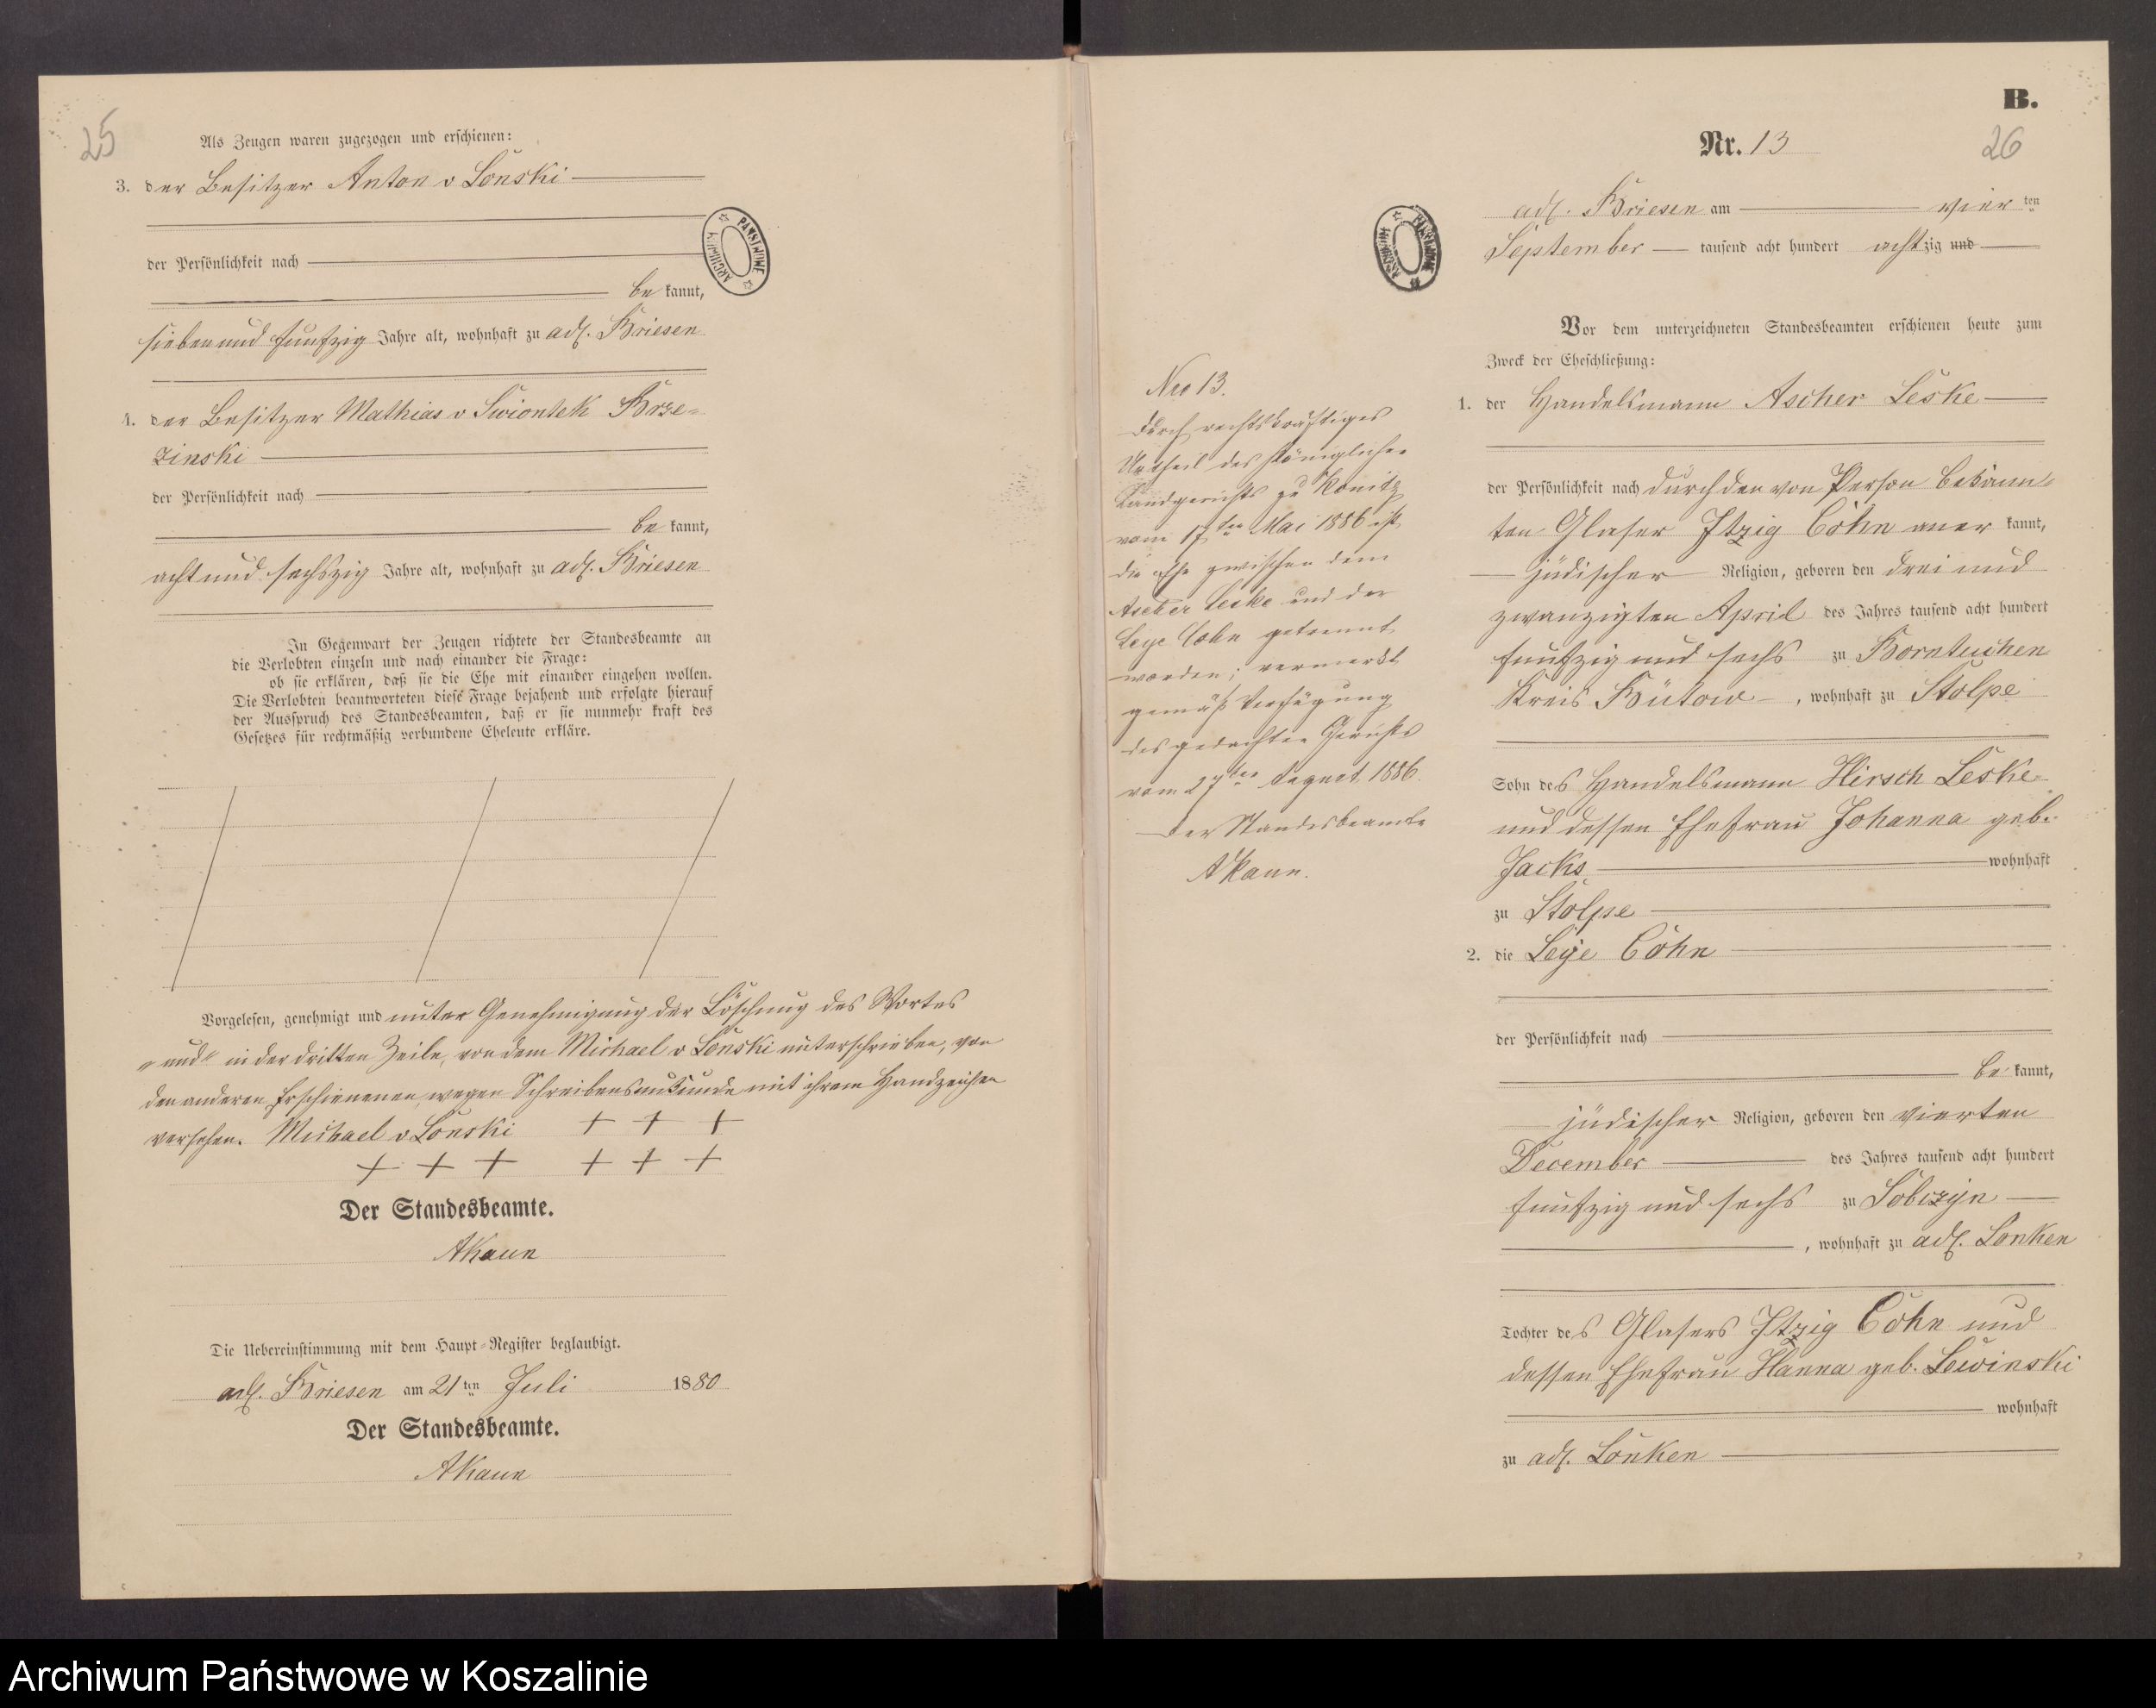 25
Als Zeugen waren zugezogen und erschienen:
3. der Besitzer Anton v Lonski
der Persönlichkeit nach
be kannt,
sieben und funfzig Jahre alt, wohnhaft zu adl. Briesen
4. der Besitzer Mathias v Swiontek Brze=
zinski
der Persönlichkeit nach
be kannt,
acht und sechszig Jahre alt, wohnhaft zu adl. Briesen
In Gegenwart der Zeugen richtete der Standesbeamte an
die Verlobten einzeln und nach einander die Frage:
ob sie erklären, daß sie die Ehe mit einander eingehen wollen.
Die Verlobten beantworteten diese Frage bejahend und erfolgte hierauf
der Ausspruch des Standesbeamten, daß er sie nunmehr kraft des
Gesetzes für rechtmäßig verbundene Eheleute erkläre.
Vorgelesen, genehmigt und unter Genehmigung der Löschung des Wortes
"und" in der dritten Zeile, von dem Michael v Lonski unterschrieben, von
den anderen Erschienenen wegen Schreibensunkunde mit ihrem Handzeichen
versehen. Michael v Lonski + + +
+ + + + + +
Der Standesbeamte.
AKaun
Die Uebereinstimmung mit dem Haupt-Register beglaubigt.
adl. Briesen am 21 ten Juli 1880
Der Standesbeamte.
AKaun
PAŃSTWOWE ARCHIWUM
B.
Nr. 13
26
adl. Briesen am vier ten
September tausend acht hundert achtzig und
Vor dem unterzeichneten Standesbeamten erschienen heute zum
Zweck der Eheschließung:
1. der Handelsmann Ascher Leske
der Persönlichkeit nach durch den von Person bekann=
ten Glaser Itzig Cohn aner kannt,
jüdischer Religion, geboren den drei und
zwanzigten April des Jahres tausend acht hundert
funfzig und sechs zu Borntuchen
Kreis Bütow, wohnhaft zu Stolpe
Sohn des Handelsmann Hirsch Leske
und dessen Ehefrau Johanna geb.
Jacks wohnhaft
zu Stolpe
2. die Leye Cohn
der Persönlichkeit nach
be kannt,
jüdischer Religion, geboren den vierten
December des Jahres tausend acht hundert
funfzig und sechs zu Sobczyn
, wohnhaft zu adl. Lonken
Tochter des Glasers Itzig Cohn und
dessen Ehefrau Hanna geb. Lewinski
wohnhaft
zu adl. Lonken
PAŃSTWOWE ARCHIWUM
Nro 13.
Durch rechtskräftiges
Urtheil des Königlichen
Landgerichts zu Konitz
vom 17ten Mai 1886 ist
die Ehe zwischen dem
Ascher Leske und der
Leye Cohn getrennt
worden; vermerkt
gemäß Verfügung
des gedachten Gerichts
vom 27ten August 1886.
Der Standesbeamte
AKaun.
Archiwum Państwowe w Koszalinie